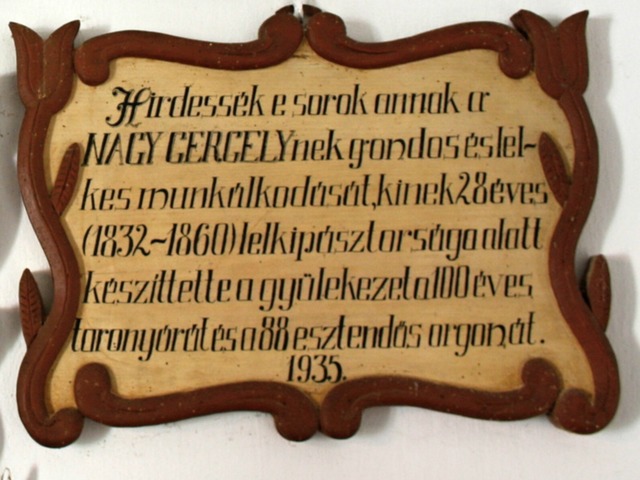 Hirdessék e sorok annak a
NAGY GERGELYnek gondos és lel~
kes munkálkodását, kinek 28 éves
(1832~1860) lelkipásztorsága alatt
készíttette a gyülekezet a 100 éves
toronyórát és a 88 esztendős orgonát.
1935.